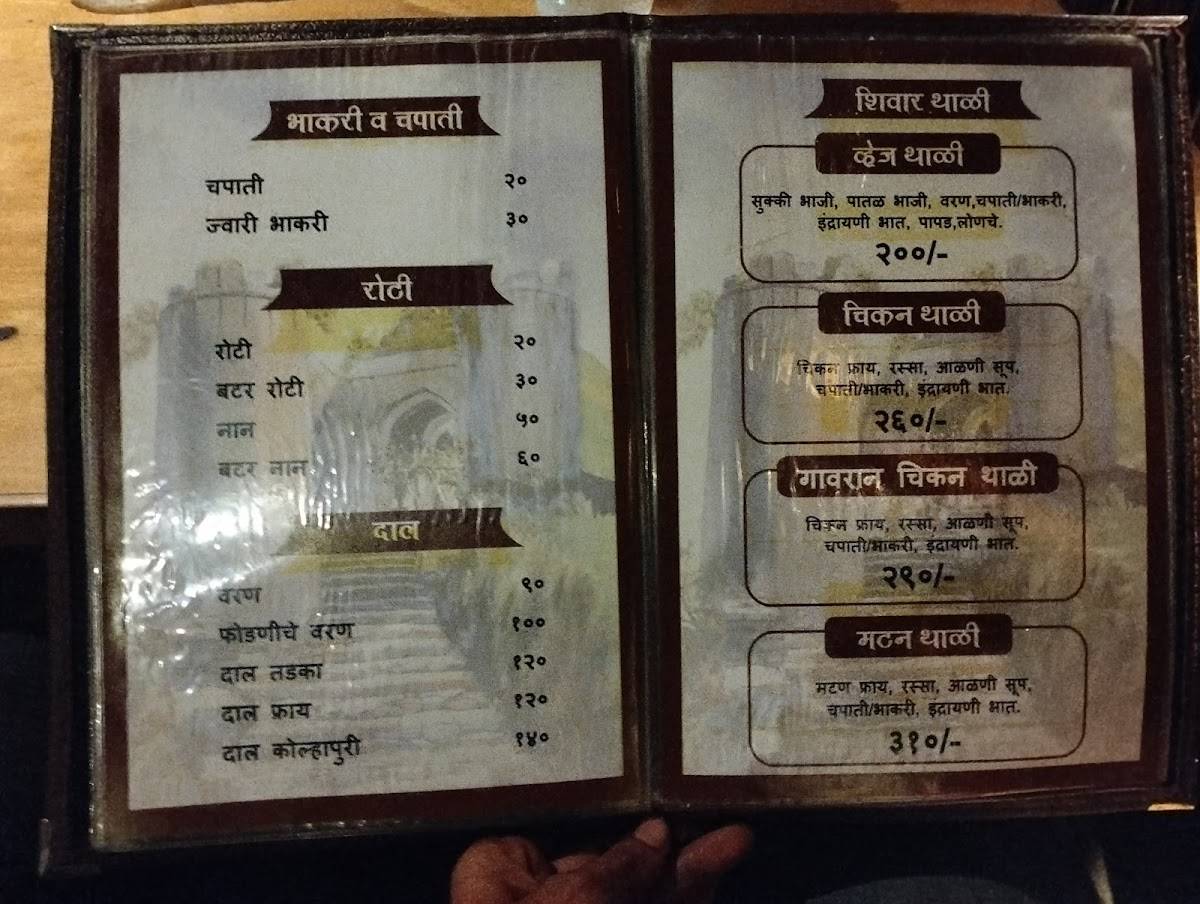 भाकरी व चपाती
चपाती २०
ज्वारी भाकरी ३०
रोटी
रोटी २०
बटर रोटी ३०
नान ५०
बटर नान ६०
दाल
वरण ९०
फोडणीचे वरण १००
दाल तडका १२०
दाल फ्राय १२०
दाल कोल्हापुरी १४०
शिवार थाळी
व्हेज थाळी
सुक्की भाजी, पातळ भाजी, वरण,चपाती/भाकरी,
इंद्रायणी भात, पापड,लोणचे.
२००/-
चिकन थाळी
चिकन फ्राय, रस्सा, आळणी सूप,
चपाती/भाकरी, इंद्रायणी भात.
२६०/-
गावरान चिकन थाळी
चिकन फ्राय, रस्सा, आळणी सूप,
चपाती/भाकरी, इंद्रायणी भात.
२९०/-
मटन थाळी
मटण फ्राय, रस्सा, आळणी सूप,
चपाती/भाकरी, इंद्रायणी भात.
३१०/-